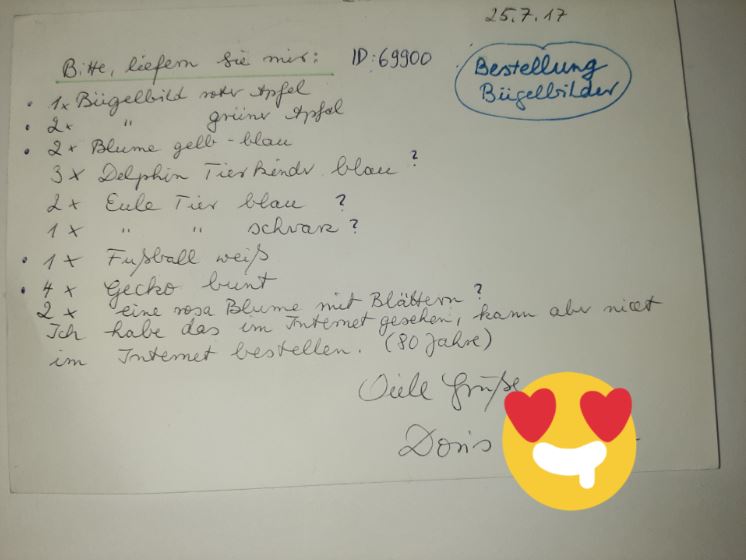 25.7.17
Bitte, liefern Sie mir: ID:69900
Bestellung
Bügelbilder
• 1x Bügelbild roter Apfel
• 2x " grüner Apfel
• 2x Blume gelb-blau
3x Delphin Tierkinder blau ?
2x Eule Tier blau ?
1x " " schwarz ?
• 1x Fußball weiß
• 4x Gecko bunt
2x eine rosa Blume mit Blättern ?
Ich habe das im Internet gesehen, kann aber nicht
im Internet bestellen. (80 Jahre)
Viele Grüße
Doris